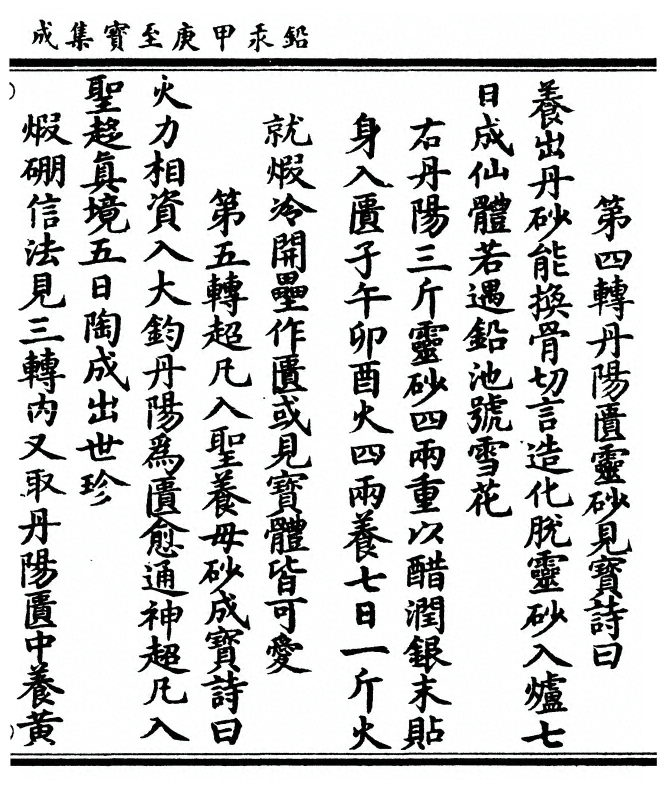 鉛汞甲庚至寶集成
第四轉丹陽匱靈砂見寶詩曰
養出丹砂能換骨切言造化脫靈砂入爐七
日成仙體若遇鉛池號雪花
右丹陽三斤靈砂四兩重以醋潤銀末貼
身入匱子午卯酉火四兩養七日一斤火
就煆冷開壘作匱或見寶體皆可愛
第五轉超凡入聖養母砂成寶詩曰
火力相資入大鈞丹陽為匱愈通神超凡入
聖趍真境五日陶成出世珍
煆硼信法見三轉內又取丹陽匱中養黃